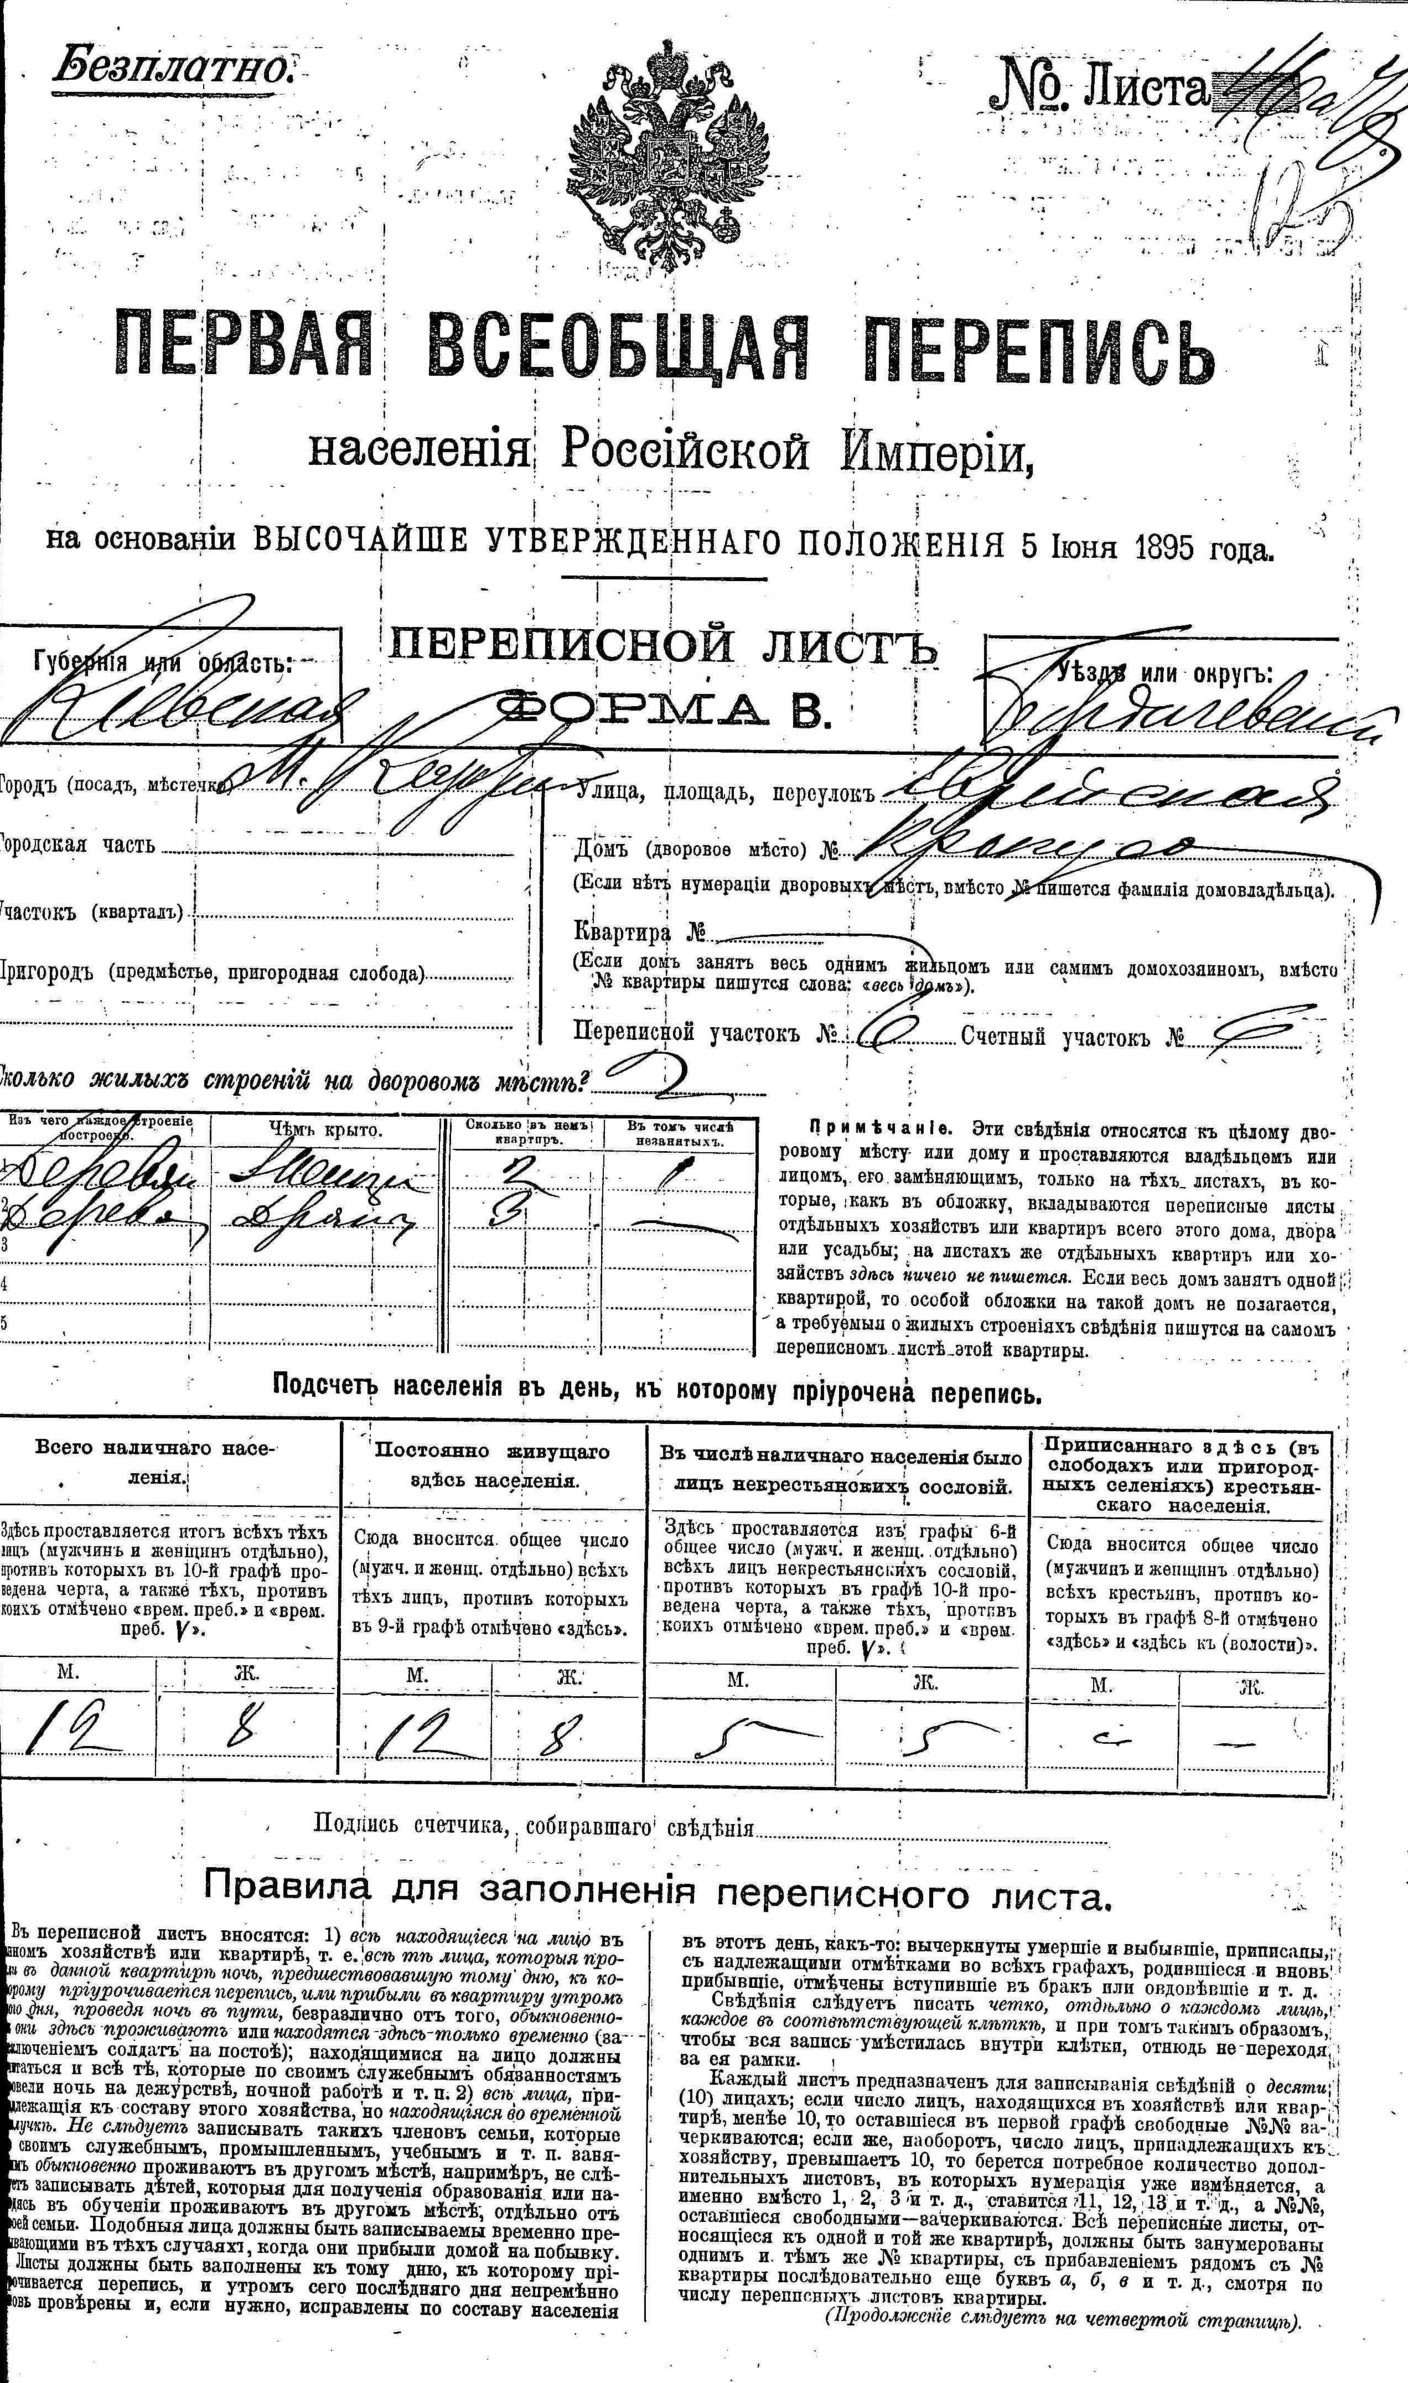 Безплатно.
№. Листа
125
ПЕРВАЯ ВСЕОБЩАЯ ПЕРЕПИСЬ
населенія Россійской Имперіи,
на основаніи ВЫСОЧАЙШЕ УТВЕРЖДЕННАГО ПОЛОЖЕНІЯ 5 Іюня 1895 года.
ПЕРЕПИСНОЙ ЛИСТЪ
ФОРМА В.
Губернія или область:
Кіевская
Уѣздъ или округъ:
Бердичевскій
Городъ (посадъ, мѣстечко) м.
Городская часть
Участокъ (кварталъ)
Пригородъ (предмѣстье, пригородная слобода)
Улица, площадь, переулокъ Еврейская
Домъ (дворовое мѣсто) №
(Если нѣтъ нумераціи дворовыхъ мѣстъ, вмѣсто № пишется фамилія домовладѣльца).
Квартира №
(Если домъ занятъ весь однимъ жильцомъ или самимъ домохозяиномъ, вмѣсто
№ квартиры пишутся слова: «весь домъ»).
Переписной участокъ № 6 Счетный участокъ № 6
Сколько жилыхъ строеній на дворовомъ мѣстѣ? 2
Изъ чего каждое строеніе построено.
Чѣмъ крыто.
Сколько въ немъ квартиръ.
Въ томъ числѣ незанятыхъ.
1 Деревян 2 1
2 Дерево 3 —
3
4
5
Примѣчаніе. Эти свѣдѣнія относятся къ цѣлому дво-
ровому мѣсту или дому и проставляются владѣльцемъ или
лицомъ, его замѣняющимъ, только на тѣхъ листахъ, въ ко-
торые, какъ въ обложку, вкладываются переписные листы
отдѣльныхъ хозяйствъ или квартиръ всего этого дома, двора
или усадьбы; на листахъ же отдѣльныхъ квартиръ или хо-
зяйствъ здѣсь ничего не пишется. Если весь домъ занятъ одной
квартирой, то особой обложки на такой домъ не полагается,
а требуемыя о жилыхъ строеніяхъ свѣдѣнія пишутся на самомъ
переписномъ листѣ этой квартиры.
Подсчетъ населенія въ день, къ которому пріурочена перепись.
Всего наличнаго насе-
ленія.
Здѣсь проставляется итогъ всѣхъ тѣхъ
лицъ (мужчинъ и женщинъ отдѣльно),
противъ которыхъ въ 10-й графѣ про-
ведена черта, а также тѣхъ, противъ
коихъ отмѣчено «врем. преб.» и «врем.
преб. V».
М. Ж.
12 8
Постоянно живущаго
здѣсь населенія.
Сюда вносится общее число
(мужч. и женщ. отдѣльно) всѣхъ
тѣхъ лицъ, противъ которыхъ
въ 9-й графѣ отмѣчено «здѣсь».
М. Ж.
12 8
Въ числѣ наличнаго населенія было
лицъ некрестьянскихъ сословій.
Здѣсь проставляется изъ графы 6-й
общее число (мужч. и женщ. отдѣльно)
всѣхъ лицъ некрестьянскихъ сословій,
противъ которыхъ въ графѣ 10-й про-
ведена черта, а также тѣхъ, противъ
коихъ отмѣчено «врем. преб.» и «врем.
преб. V».
М. Ж.
5 5
Приписаннаго здѣсь (въ
слободахъ или пригород-
ныхъ селеніяхъ) крестьян-
скаго населенія.
Сюда вносится общее число
(мужчинъ и женщинъ отдѣльно)
всѣхъ крестьянъ, противъ ко-
торыхъ въ графѣ 8-й отмѣчено
«здѣсь» и «здѣсь къ (волости)».
М. Ж.
— —
Подпись счетчика, собиравшаго свѣдѣнія
Правила для заполненія переписного листа.
Въ переписной листъ вносятся: 1) всѣ находящіеся на лицо въ
хозяйствѣ или квартирѣ, т. е. всѣ тѣ лица, которыя про-
въ данной квартирѣ ночь, предшествовавшую тому дню, къ ко-
торому пріурочивается перепись, или прибыли въ квартиру утромъ
дня, проведя ночь въ пути, безразлично отъ того, обыкновенно-
они здѣсь проживаютъ или находятся здѣсь только временно (за
исключеніемъ солдатъ на постоѣ); находящимися на лицо должны
считаться и всѣ тѣ, которые по своимъ служебнымъ обязанностямъ
провели ночь на дежурствѣ, ночной работѣ и т. п. 2) всѣ лица, при-
надлежащія къ составу этого хозяйства, но находящіяся во временной
отлучкѣ. Не слѣдуетъ записывать такихъ членовъ семьи, которые
своимъ служебнымъ, промышленнымъ, учебнымъ и т. п. заня-
тіямъ обыкновенно проживаютъ въ другомъ мѣстѣ, напримѣръ, не слѣ-
дуетъ записывать дѣтей, которыя для полученія образованія или на-
ходясь въ обученіи проживаютъ въ другомъ мѣстѣ, отдѣльно отъ
своей семьи. Подобныя лица должны быть записываемы временно пре-
бывающими въ тѣхъ случаяхъ, когда они прибыли домой на побывку.
Листы должны быть заполнены къ тому дню, къ которому прі-
урочивается перепись, и утромъ сего послѣдняго дня непремѣнно
вновь провѣрены и, если нужно, исправлены по составу населенія
въ этотъ день, какъ-то: вычеркнуты умершіе и выбывшіе, приписаны,
съ надлежащими отмѣтками во всѣхъ графахъ, родившіеся и вновь
прибывшіе, отмѣчены вступившіе въ бракъ или овдовѣвшіе и т. д.
Свѣдѣнія слѣдуетъ писать четко, отдѣльно о каждомъ лицѣ,
каждое въ соотвѣтствующей клѣткѣ, и при томъ такимъ образомъ,
чтобы вся запись умѣстилась внутри клѣтки, отнюдь не переходя
за ея рамки.
Каждый листъ предназначенъ для записыванія свѣдѣній о десяти
(10) лицахъ; если число лицъ, находящихся въ хозяйствѣ или квар-
тирѣ, менѣе 10, то оставшіеся въ первой графѣ свободные №№ за-
черкиваются; если же, наоборотъ, число лицъ, принадлежащихъ къ
хозяйству, превышаетъ 10, то берется потребное количество допол-
нительныхъ листовъ, въ которыхъ нумерація уже измѣняется, а
именно вмѣсто 1, 2, 3 и т. д., ставится 11, 12, 13 и т. д., а №№,
оставшіеся свободными—зачеркиваются. Всѣ переписные листы, от-
носящіеся къ одной и той же квартирѣ, должны быть занумерованы
однимъ и тѣмъ же № квартиры, съ прибавленіемъ рядомъ съ №
квартиры послѣдовательно еще буквъ а, б, в и т. д., смотря по
числу переписныхъ листовъ квартиры.
(Продолженіе слѣдуетъ на четвертой страницѣ).